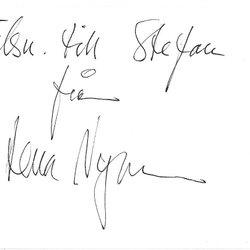 till Stefan
från
Lena Nyman